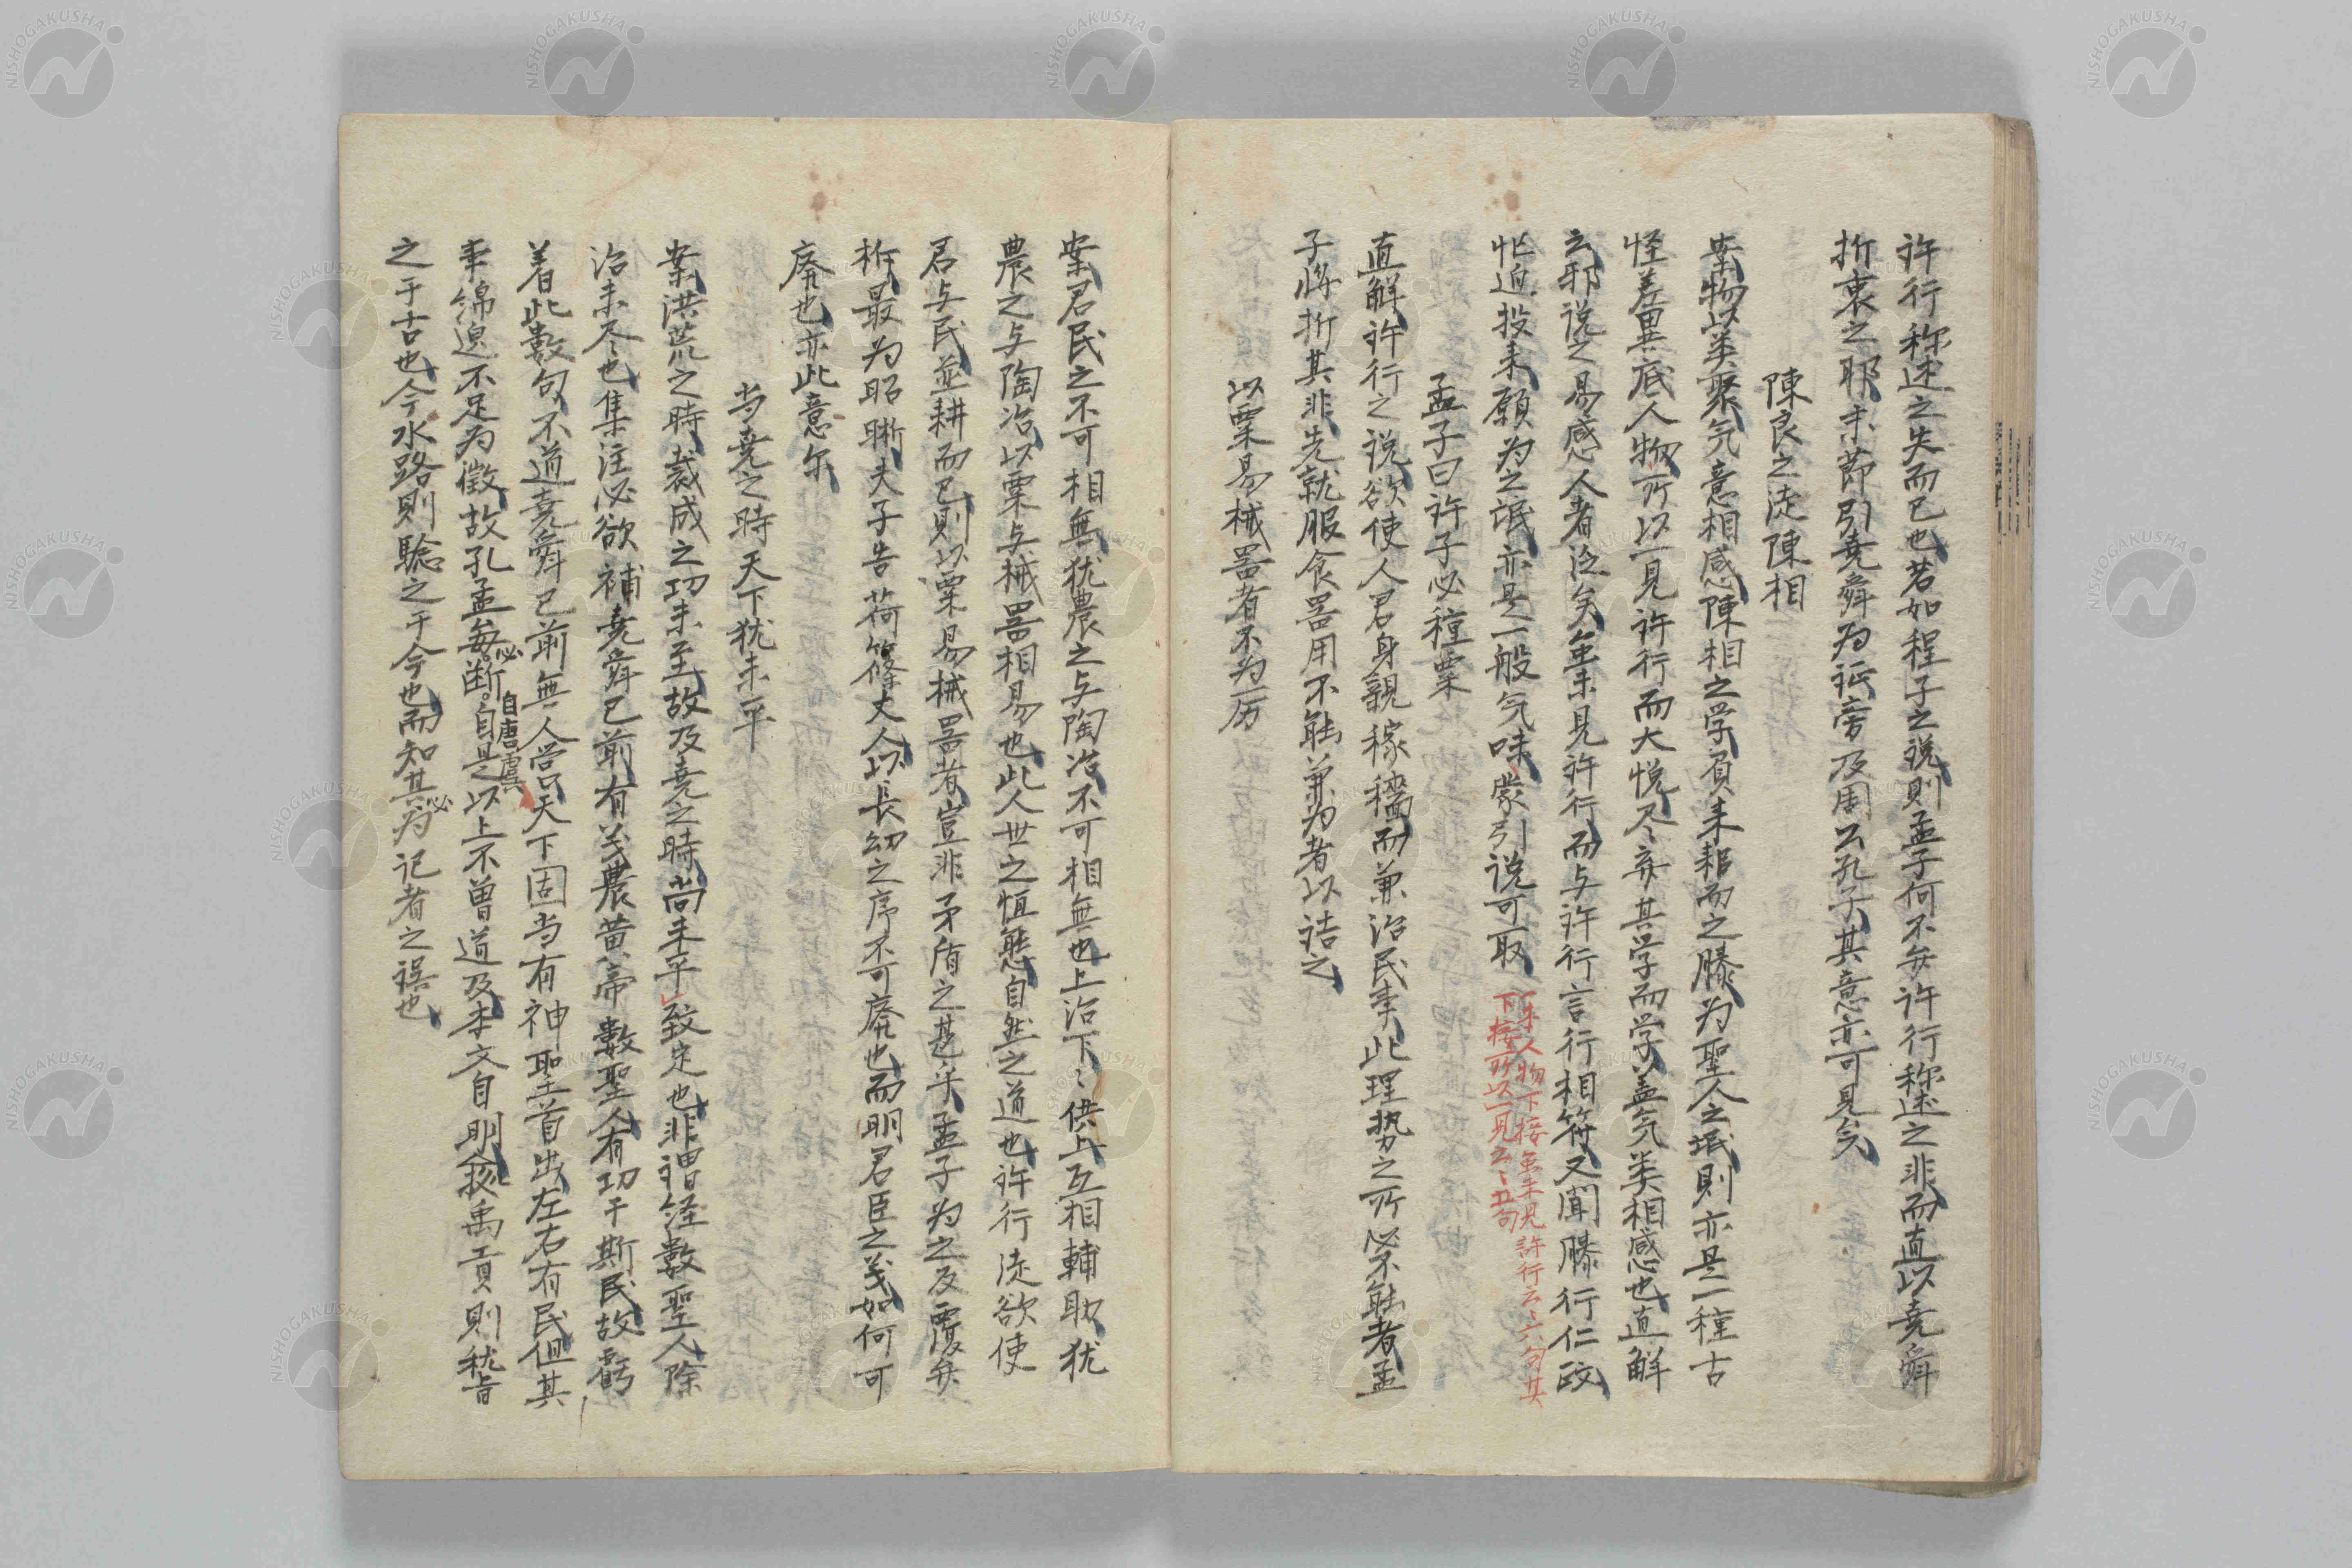 許行称述之失而已也若如程子之説則孟子何不弁許行称述之非而直以堯舜
折衷之耶末節引堯舜為証旁及周公孔子其意亦可見矣
陳良之徒陳相
案物以类聚気意相感陳相之学負耒耜而之滕為聖人之氓則亦是一種古
怪差異底人物所以一見許行而大悦尽弃其学而学蓋気类相感也直解
云邪説之易惑人者泛矣虽未見許行而与許行言行相符又聞滕行仁政
忙迫投耒願為之氓亦是一般気味蒙引説可取
一本人物下接虽未見許行云々六句其
下接所以一見云々五句
孟子曰許子必種粟
直解許行之説欲使人君身親稼穡而兼治民事此理勢之所必不能者孟
子将折其非先就服食器用不能兼為者以詰之
以粟易械器者不為厉
案君民之不可相無犹農之与陶冶不可相無也上治下々供上互相輔助犹
農之与陶冶以粟与械器相易也此人世之恒態自然之道也許行徒欲使
君与民並耕而已則以粟易械器者豈非矛盾之甚乎孟子為之反覆弁
析最为昭晰夫子告荷篠丈人以長幼之序不可廃也而明君臣之义如何可
廃也亦此意尔
当堯之時天下犹未平
案洪荒之時裁成之功未至故及堯之時尚未平致定也非禪経数聖人除
治未尽也集注必欲補堯舜已前有义農黄帝数聖人有功于斯民故虧
着此数句不道堯舜已前無人営只天下固当有神聖首出左右有民但其
事綿邈不足为徵故孔孟每断自是以上不曽道及本文自明該禹貢則稽
必
自唐虞
之于古也今水路則験之于今也而知其为記者之誤也
必
NISHOGAKUSHA